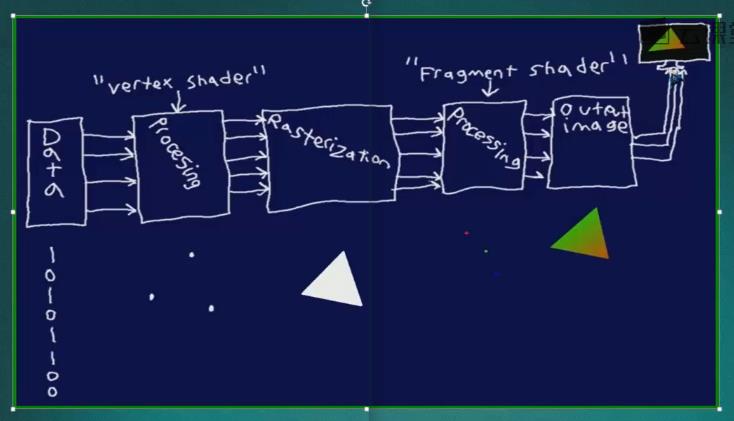 "Vertex shader"
"Fragment shader"
Data
Procesing
Rasterization
Processing
Output
image
1
0
1
0
1
1
0
0